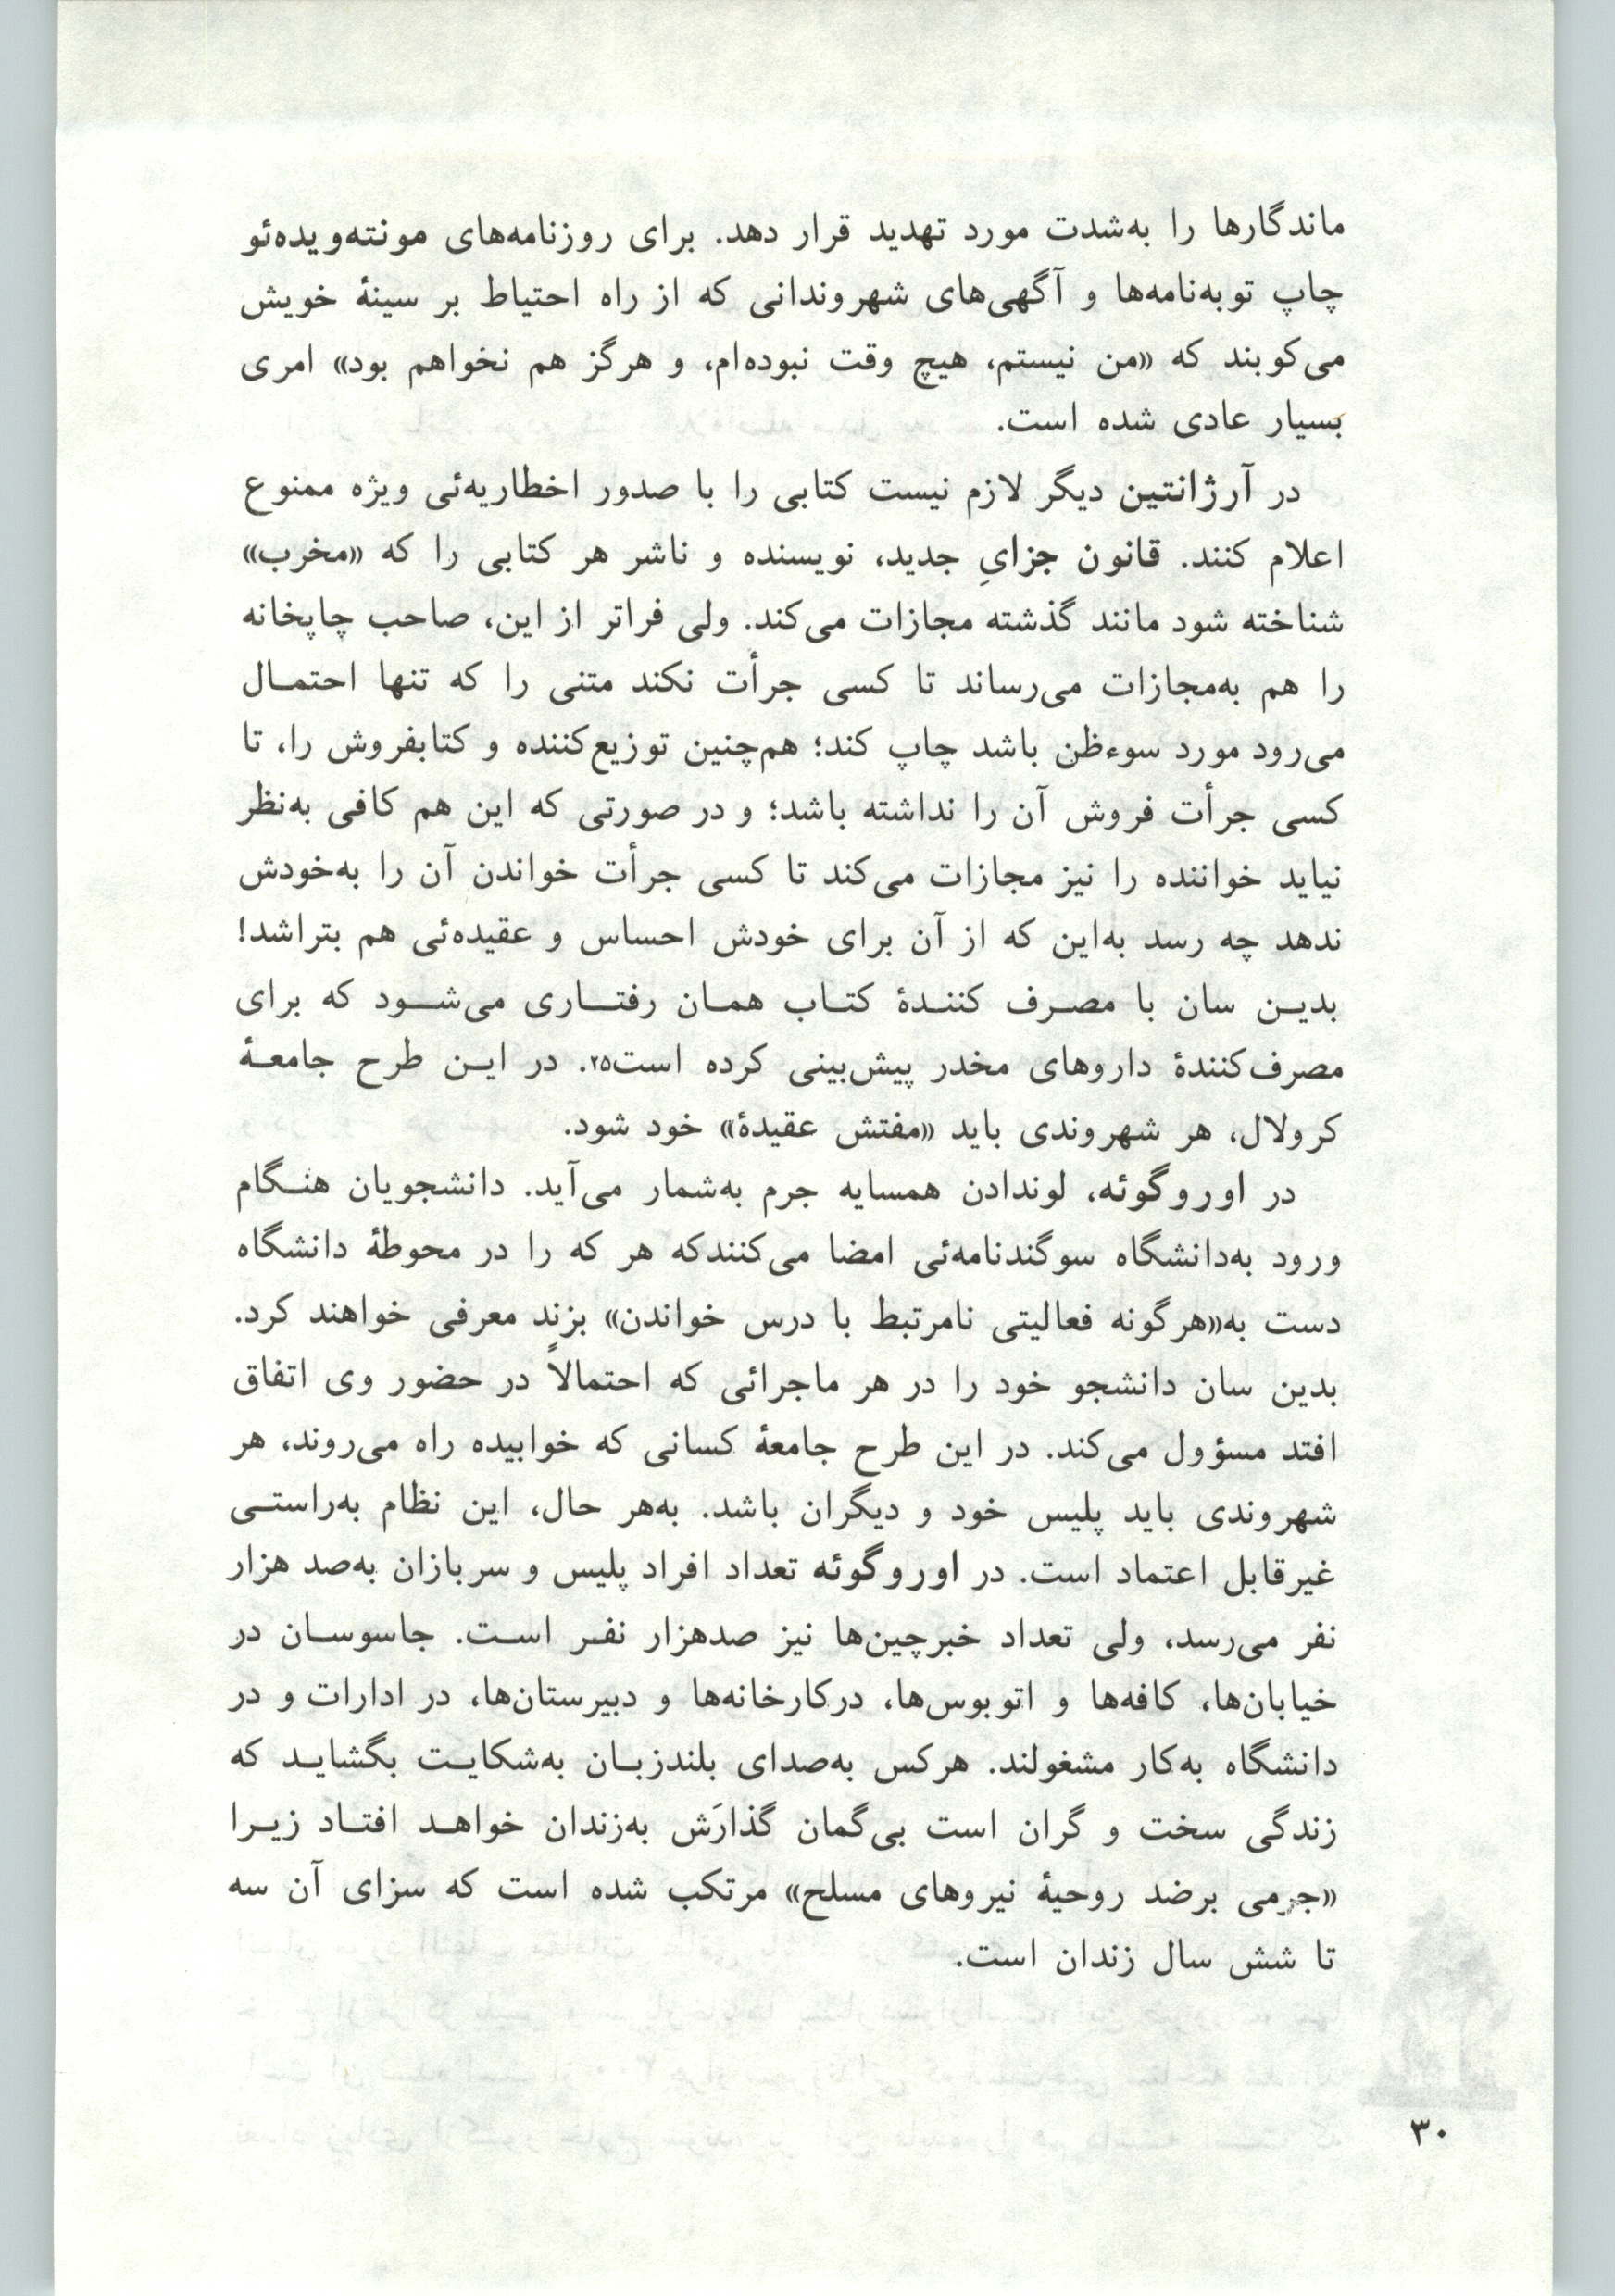 ماندگارها را به‌شدت مورد تهدید قرار دهد. برای روزنامه‌های مونته‌ویده‌ئو
چاپ توبه‌نامه‌ها و آگهی‌های شهروندانی که از راه احتیاط بر سینهٔ خویش
می‌کوبند که «من نیستم، هیچ وقت نبوده‌ام، و هرگز هم نخواهم بود» امری
بسیار عادی شده است.
در آرژانتین دیگر لازم نیست کتابی را با صدور اخطاریه‌ئی ویژه ممنوع
اعلام کنند. قانون جزایِ جدید، نویسنده و ناشر هر کتابی را که «مخرب»
شناخته شود مانند گذشته مجازات می‌کند. ولی فراتر از این، صاحب چاپخانه
را هم به‌مجازات می‌رساند تا کسی جرأت نکند متنی را که تنها احتمـال
می‌رود مورد سوءظن باشد چاپ کند؛ هم‌چنین توزیع‌کننده و کتابفروش را، تا
کسی جرأت فروش آن را نداشته باشد؛ و در صورتی که این هم کافی به‌نظر
نیاید خواننده را نیز مجازات می‌کند تا کسی جرأت خواندن آن را به‌خودش
ندهد چه رسد به‌این که از آن برای خودش احساس و عقیده‌ئی هم بتراشد!
بدیـن سان با مصـرف کننـدهٔ کتـاب همـان رفتـاری می‌شـود که برای
مصرف‌کنندهٔ داروهای مخدر پیش‌بینی کرده است۲۵. در ایـن طرح جامعـهٔ
کرولال، هر شهروندی باید «مفتش عقیدهٔ» خود شود.
در اوروگوئه، لوندادن همسایه جرم به‌شمار می‌آید. دانشجویان هنـگام
ورود به‌دانشگاه سوگندنامه‌ئی امضا می‌کنندکه هر که را در محوطهٔ دانشگاه
دست به‌«هرگونه فعالیتی نامرتبط با درس خواندن» بزند معرفی خواهند کرد.
بدین سان دانشجو خود را در هر ماجرائی که احتمالاً در حضور وی اتفاق
افتد مسؤول می‌کند. در این طرح جامعهٔ کسانی که خوابیده راه می‌روند، هر
شهروندی باید پلیس خود و دیگران باشد. به‌هر حال، این نظام به‌راستـی
غیرقابل اعتماد است. در اوروگوئه تعداد افراد پلیس و سربازان به‌صد هزار
نفر می‌رسد، ولی تعداد خبرچین‌ها نیز صدهزار نفـر اسـت. جاسوسـان در
خیابان‌ها، کافه‌ها و اتوبوس‌ها، درکارخانه‌ها و دبیرستان‌ها، در ادارات و در
دانشگاه به‌کار مشغولند. هرکس به‌صدای بلندزبـان به‌شکایـت بگشایـد که
زندگی سخت و گران است بی‌گمان گذارَش به‌زندان خواهـد افتـاد زیـرا
«جرمی برضد روحیهٔ نیروهای مسلح» مرتکب شده است که سزای آن سه
تا شش سال زندان است.
۳۰